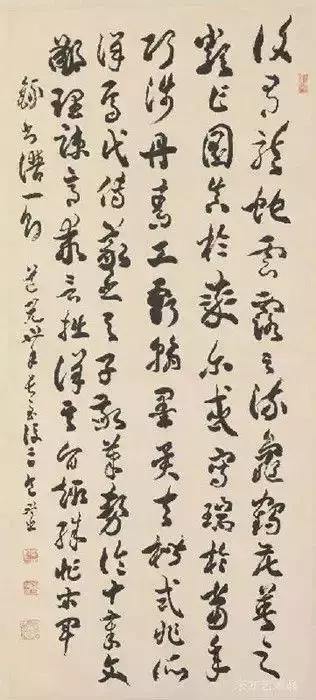 復有龍蛇雲露之流龜鶴花英之
類乍圖真於率爾或寫瑞於當年
巧涉丹青工虧翰墨異夫楷式非所
詳焉代傳羲之與子敬筆勢論十章文
鄙理疎意乖言拙詳其旨趣殊非右軍
錄書譜一節 道光